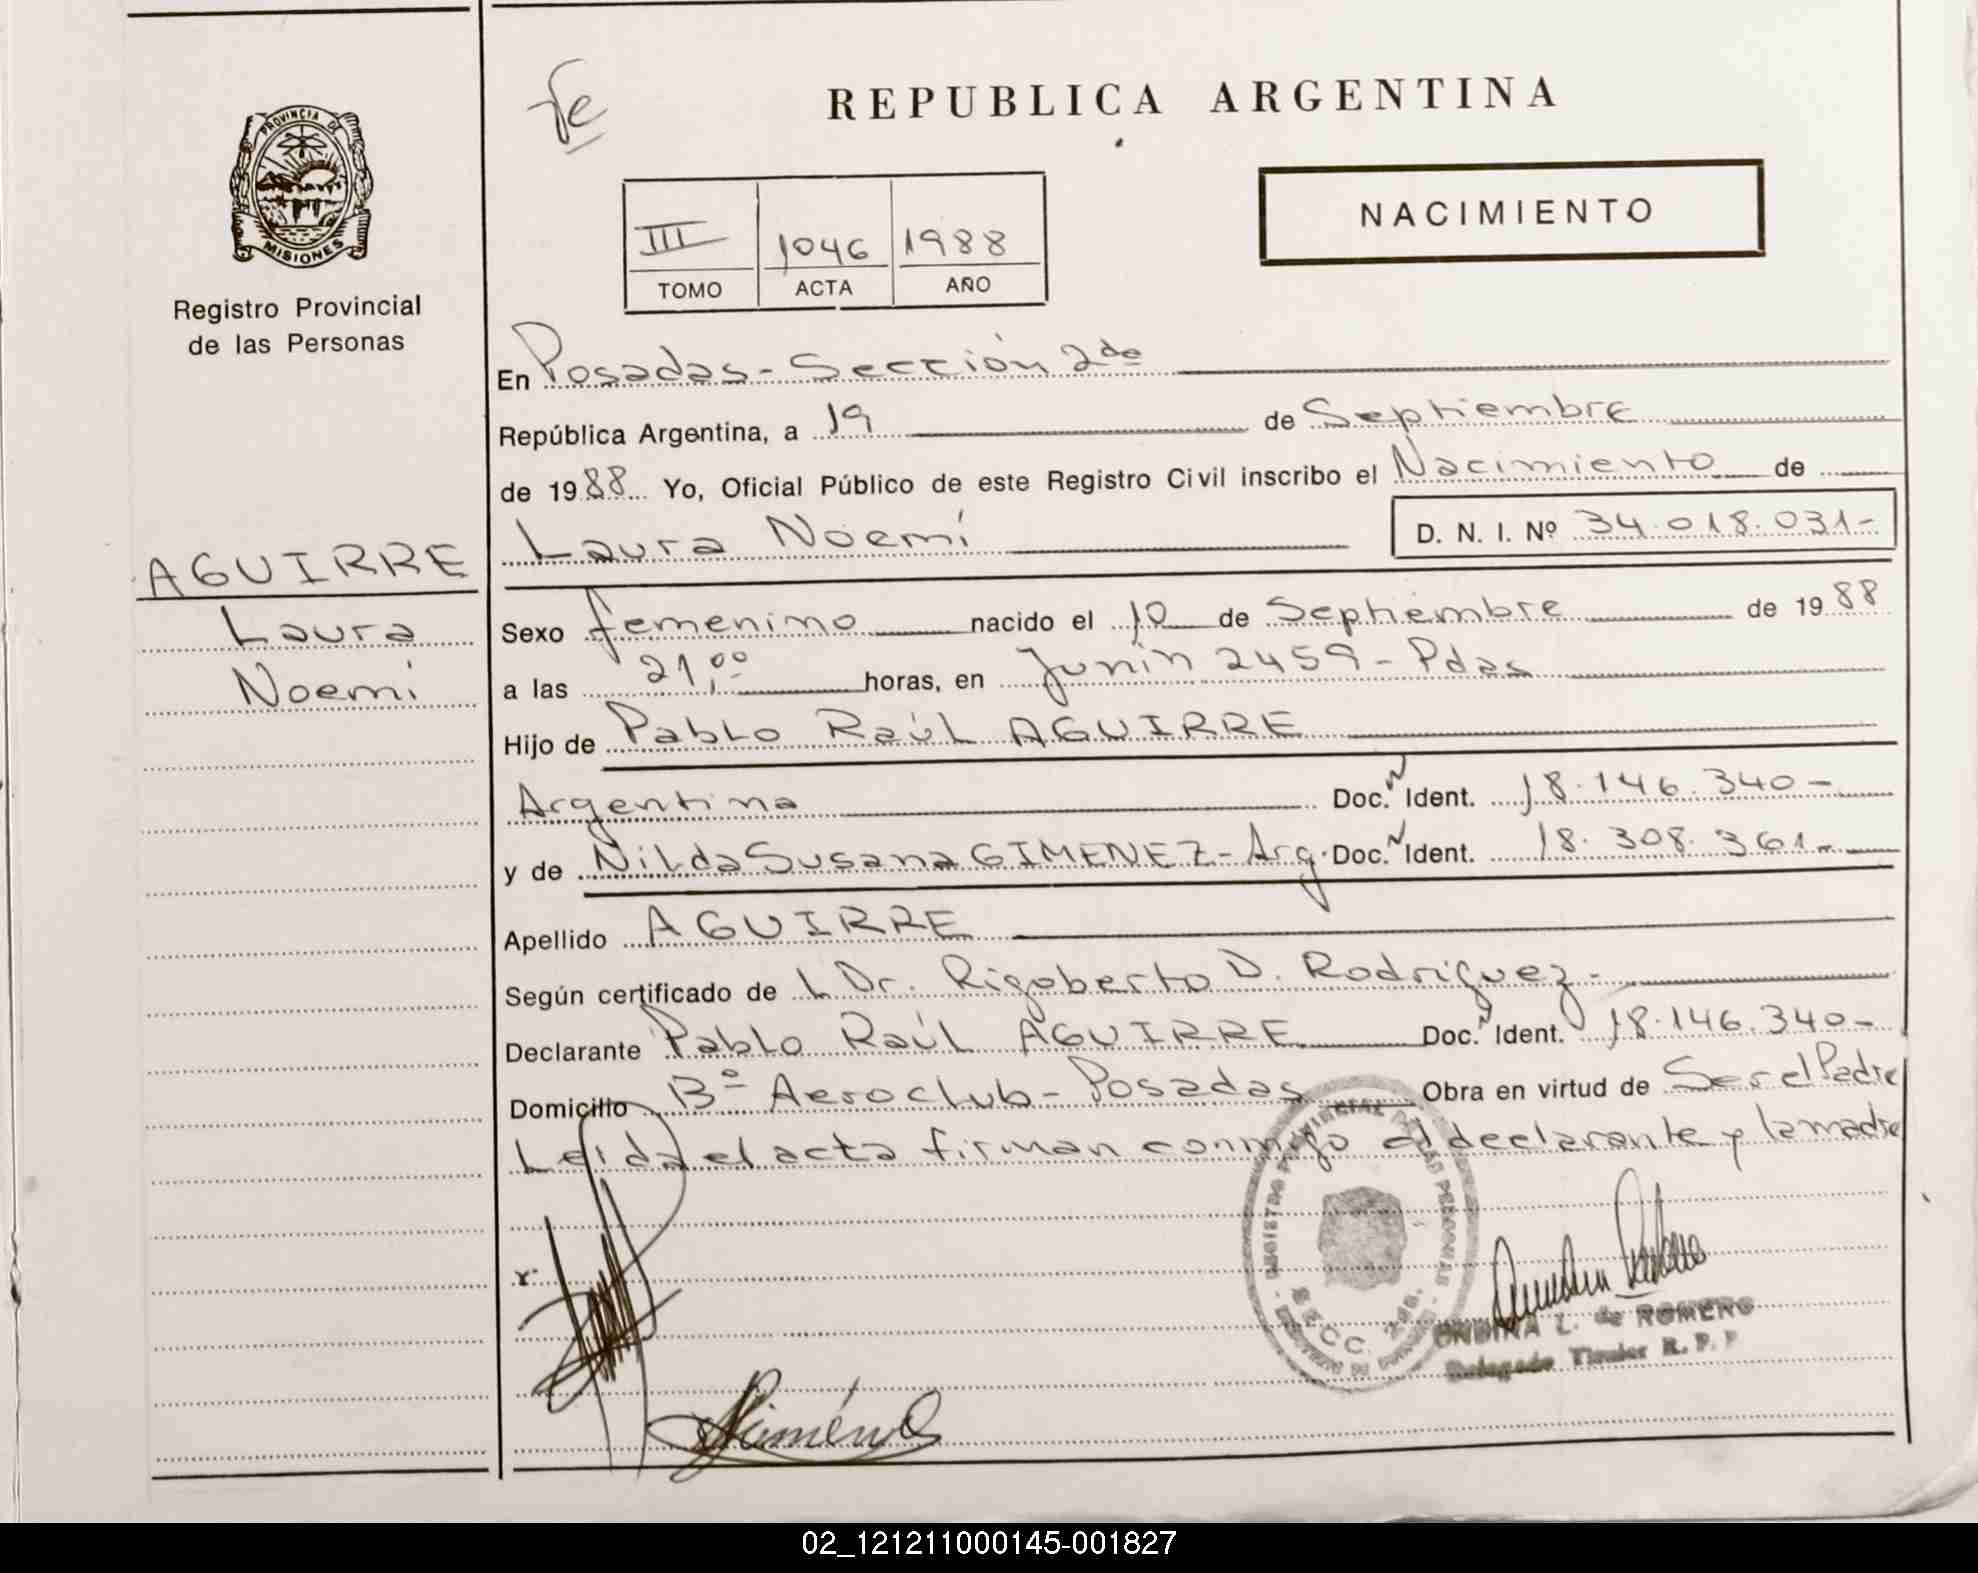 fe
REPUBLICA ARGENTINA
PROVINCIA DE
MISIONES
Registro Provincial
de las Personas
NACIMIENTO
III 1046 1988
TOMO ACTA AÑO
En Posadas - Sección 2da
República Argentina, a 19 de Septiembre
de 1988 Yo, Oficial Público de este Registro Civil inscribo el Nacimiento de
Laura Noemí D. N. I. Nº 34.018.031-
AGUIRRE
Laura
Noemí
Sexo femenino nacido el 10 de Septiembre de 1988
a las 21,00 horas, en Junín 2459 - Pdas
Hijo de Pablo Raúl AGUIRRE
Argentina Doc. N Ident. 18.146.340-
y de Nilda Susana GIMENEZ - Arg. Doc. N Ident. 18.308.361-
Apellido AGUIRRE
Según certificado de L Dr. Rigoberto D. Rodríguez-
Declarante Pablo Raúl AGUIRRE Doc. N Ident. 18.146.340-
Domicilio Bº Aeroclub - Posadas Obra en virtud de Ser el Padre
Leida el acta firman conmigo el declarante y la madre
REGISTRO PROVINCIAL DE LAS PERSONAS
SECC. 2da.
ONDINA L. de ROMERO
Delegado Titular R. P. P
Giménez
02_121211000145-001827